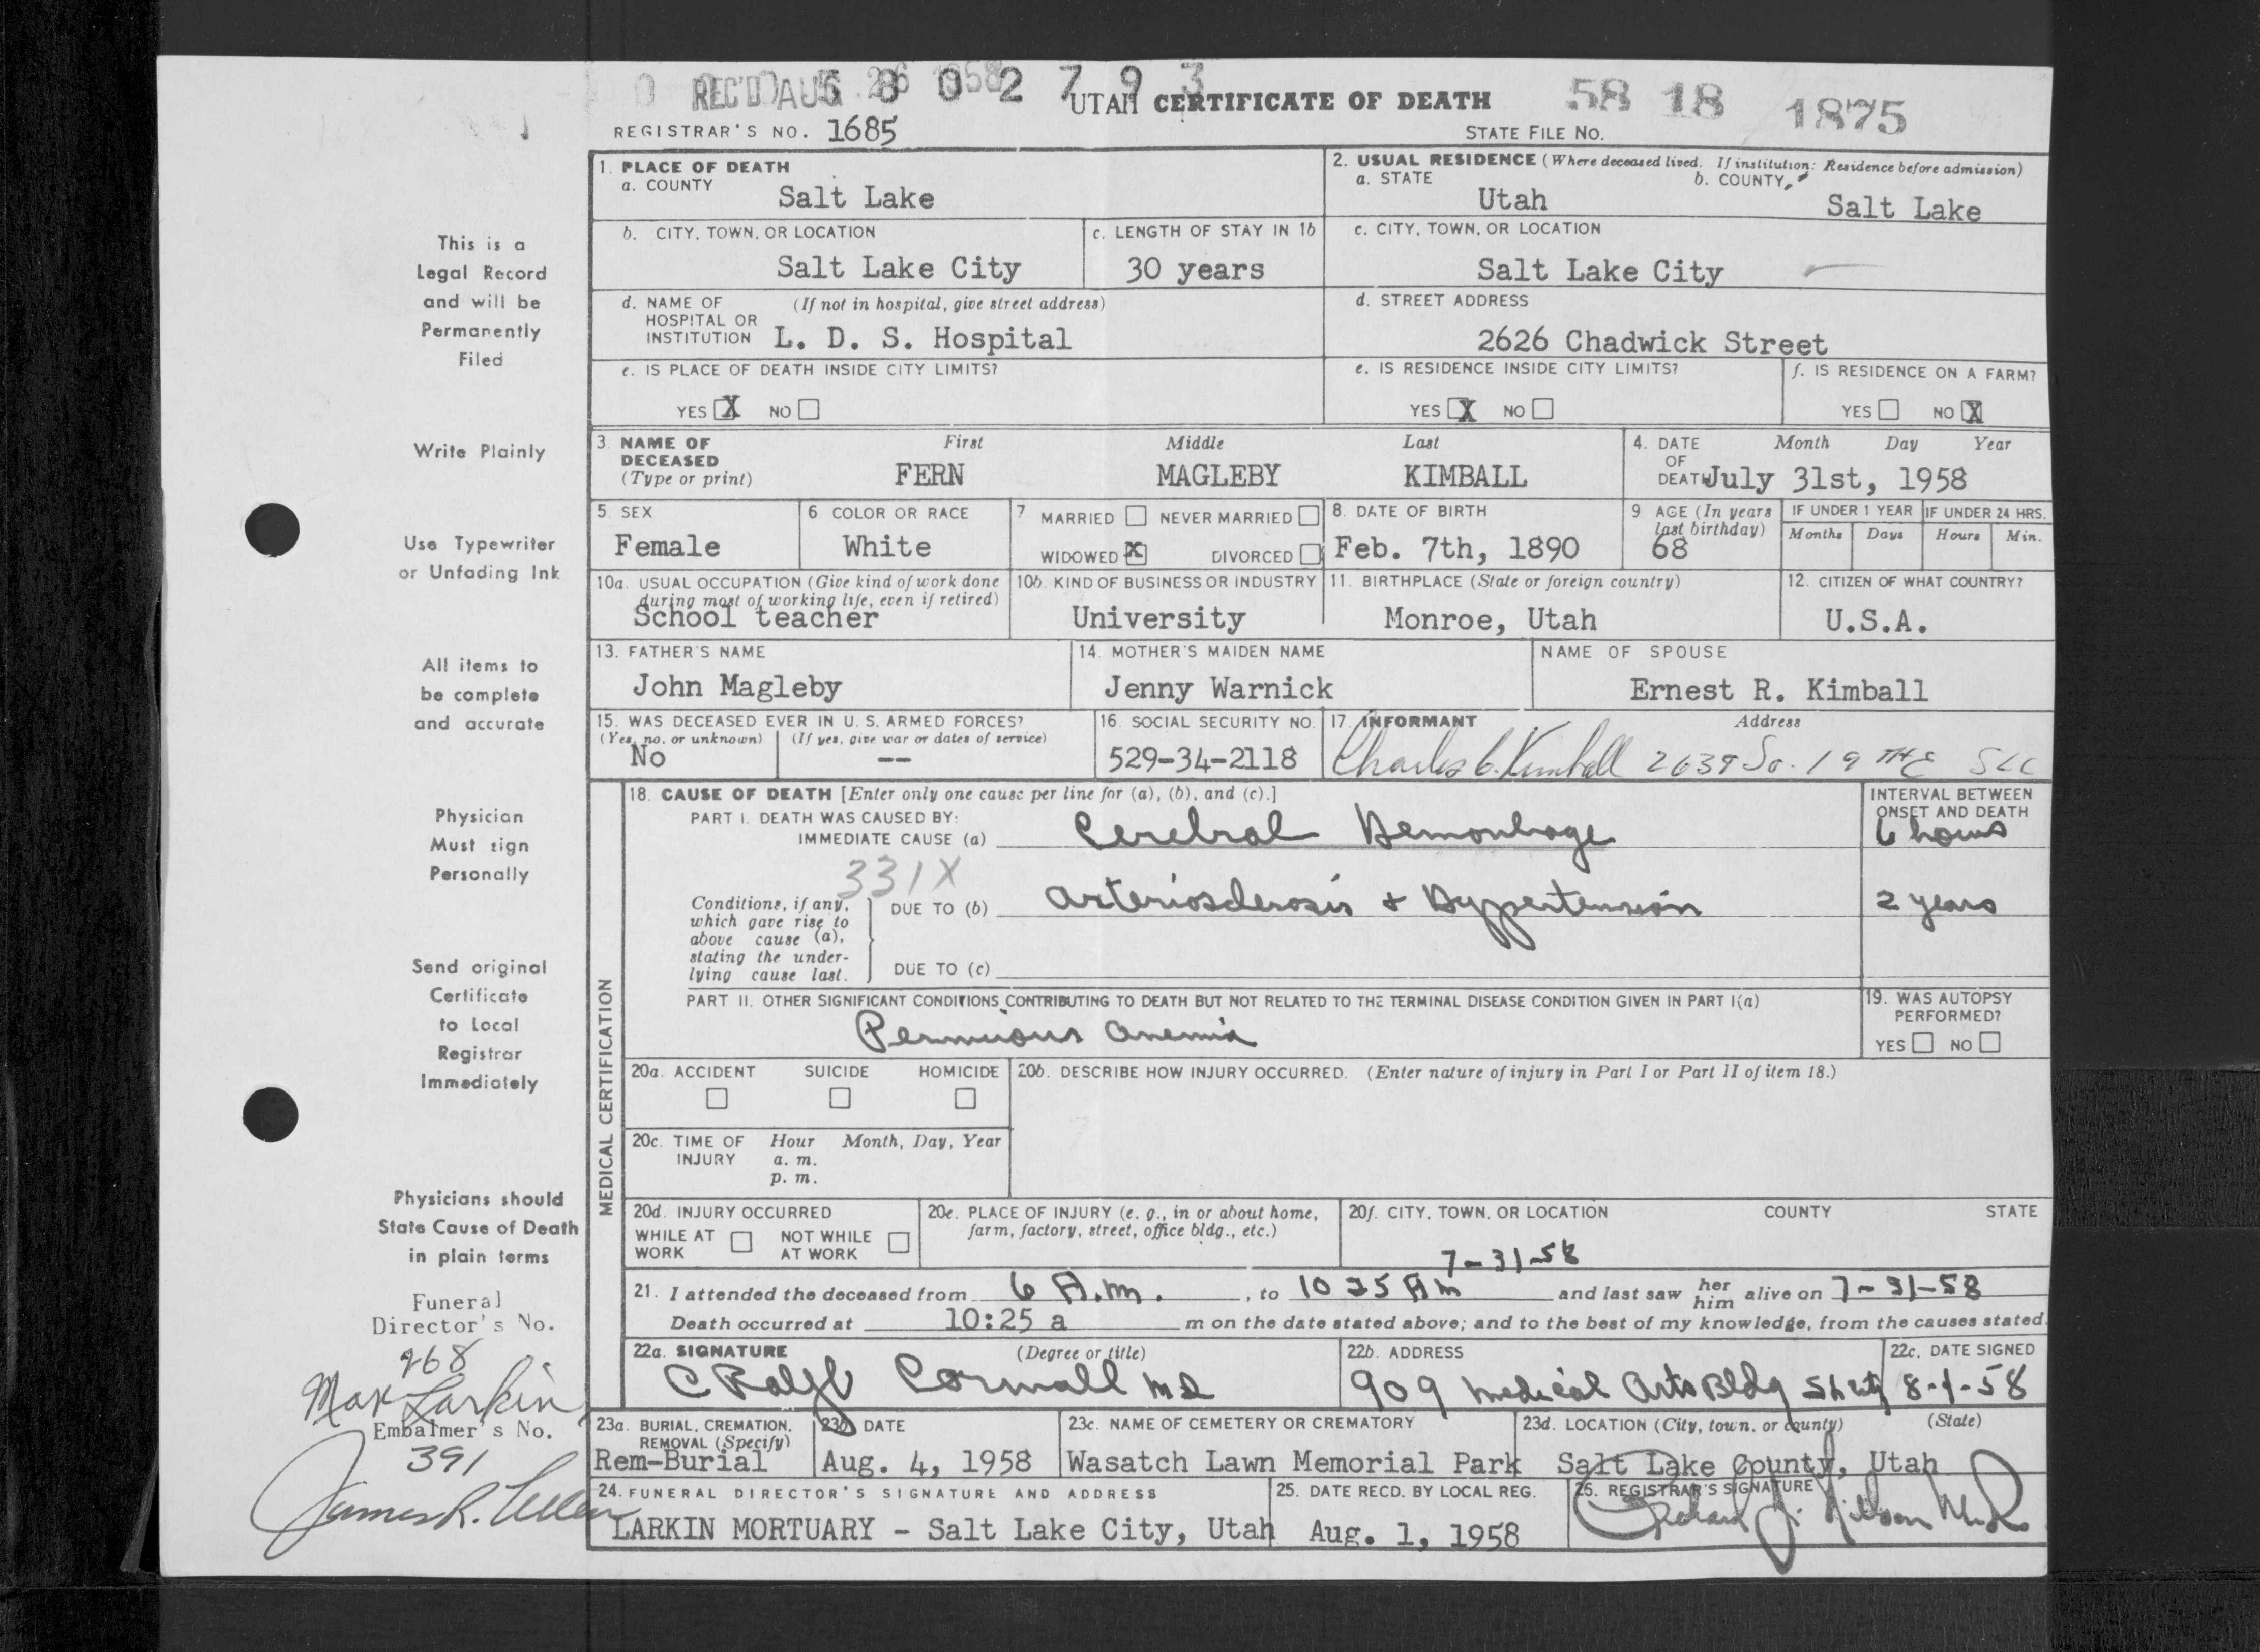 REC'D AUG 26 1958
5 8 0 2 7 9 3
UTAH CERTIFICATE OF DEATH
58 18 1875
REGISTRAR'S NO. 1685
STATE FILE NO.
1. PLACE OF DEATH
a. COUNTY
Salt Lake
2. USUAL RESIDENCE (Where deceased lived. If institution: Residence before admission)
a. STATE
Utah
b. COUNTY
Salt Lake
b. CITY, TOWN, OR LOCATION
Salt Lake City
c. LENGTH OF STAY IN 1b
30 years
c. CITY, TOWN, OR LOCATION
Salt Lake City
d. NAME OF (If not in hospital, give street address)
HOSPITAL OR
INSTITUTION L. D. S. Hospital
d. STREET ADDRESS
2626 Chadwick Street
e. IS PLACE OF DEATH INSIDE CITY LIMITS?
YES X NO
e. IS RESIDENCE INSIDE CITY LIMITS?
YES X NO
f. IS RESIDENCE ON A FARM?
YES NO X
3. NAME OF DECEASED
(Type or print)
First Middle Last
FERN MAGLEBY KIMBALL
4. DATE OF DEATH
Month Day Year
July 31st, 1958
5. SEX
Female
6 COLOR OR RACE
White
7 MARRIED NEVER MARRIED
WIDOWED X DIVORCED
8. DATE OF BIRTH
Feb. 7th, 1890
9 AGE (In years
last birthday)
68
IF UNDER 1 YEAR IF UNDER 24 HRS.
Months Days Hours Min.
10a. USUAL OCCUPATION (Give kind of work done
during most of working life, even if retired)
School teacher
10b. KIND OF BUSINESS OR INDUSTRY
University
11. BIRTHPLACE (State or foreign country)
Monroe, Utah
12. CITIZEN OF WHAT COUNTRY?
U.S.A.
13. FATHER'S NAME
John Magleby
14. MOTHER'S MAIDEN NAME
Jenny Warnick
NAME OF SPOUSE
Ernest R. Kimball
15. WAS DECEASED EVER IN U. S. ARMED FORCES?
(Yes, no, or unknown) (If yes, give war or dates of service)
No --
16. SOCIAL SECURITY NO.
529-34-2118
17. INFORMANT Address
Charles C. Kimball 2639 So. 19 THE SLC
MEDICAL CERTIFICATION
18. CAUSE OF DEATH [Enter only one cause per line for (a), (b), and (c).]
PART I. DEATH WAS CAUSED BY:
IMMEDIATE CAUSE (a) Cerebral Hemorrhage
INTERVAL BETWEEN
ONSET AND DEATH
6 hours
331X
Conditions, if any,
which gave rise to
above cause (a),
stating the under-
lying cause last.
DUE TO (b) Arteriosclerosis + Hypertension
2 years
DUE TO (c)
PART II. OTHER SIGNIFICANT CONDITIONS CONTRIBUTING TO DEATH BUT NOT RELATED TO THE TERMINAL DISEASE CONDITION GIVEN IN PART I(a)
Pernicious anemia
19. WAS AUTOPSY
PERFORMED?
YES NO
20a. ACCIDENT SUICIDE HOMICIDE
20b. DESCRIBE HOW INJURY OCCURRED. (Enter nature of injury in Part I or Part II of item 18.)
20c. TIME OF INJURY
Hour Month, Day, Year
a. m.
p. m.
20d. INJURY OCCURRED
WHILE AT WORK NOT WHILE AT WORK
20e. PLACE OF INJURY (e. g., in or about home,
farm, factory, street, office bldg., etc.)
20f. CITY, TOWN, OR LOCATION COUNTY STATE
7-31-58
21. I attended the deceased from 6 A.m., to 10 25 Am and last saw her him alive on 7-31-58
Death occurred at 10:25 a m on the date stated above; and to the best of my knowledge, from the causes stated.
22a. SIGNATURE (Degree or title)
C Ralph Cornwall MD
22b. ADDRESS
909 Medical Arts Bldg
22c. DATE SIGNED
8-1-58
23a. BURIAL, CREMATION,
REMOVAL (Specify)
Rem-Burial
23b DATE
Aug. 4, 1958
23c. NAME OF CEMETERY OR CREMATORY
Wasatch Lawn Memorial Park
23d. LOCATION (City, town, or county) (State)
Salt Lake County, Utah
24. FUNERAL DIRECTOR'S SIGNATURE AND ADDRESS
LARKIN MORTUARY - Salt Lake City, Utah
25. DATE RECD. BY LOCAL REG.
Aug. 1, 1958
26. REGISTRAR'S SIGNATURE
This is a
Legal Record
and will be
Permanently
Filed
Write Plainly
Use Typewriter
or Unfading Ink
All items to
be complete
and accurate
Physician
Must sign
Personally
Send original
Certificate
to Local
Registrar
Immediately
Physicians should
State Cause of Death
in plain terms
Funeral
Director's No.
968
Max Larkin
Embalmer's No.
391
James R.